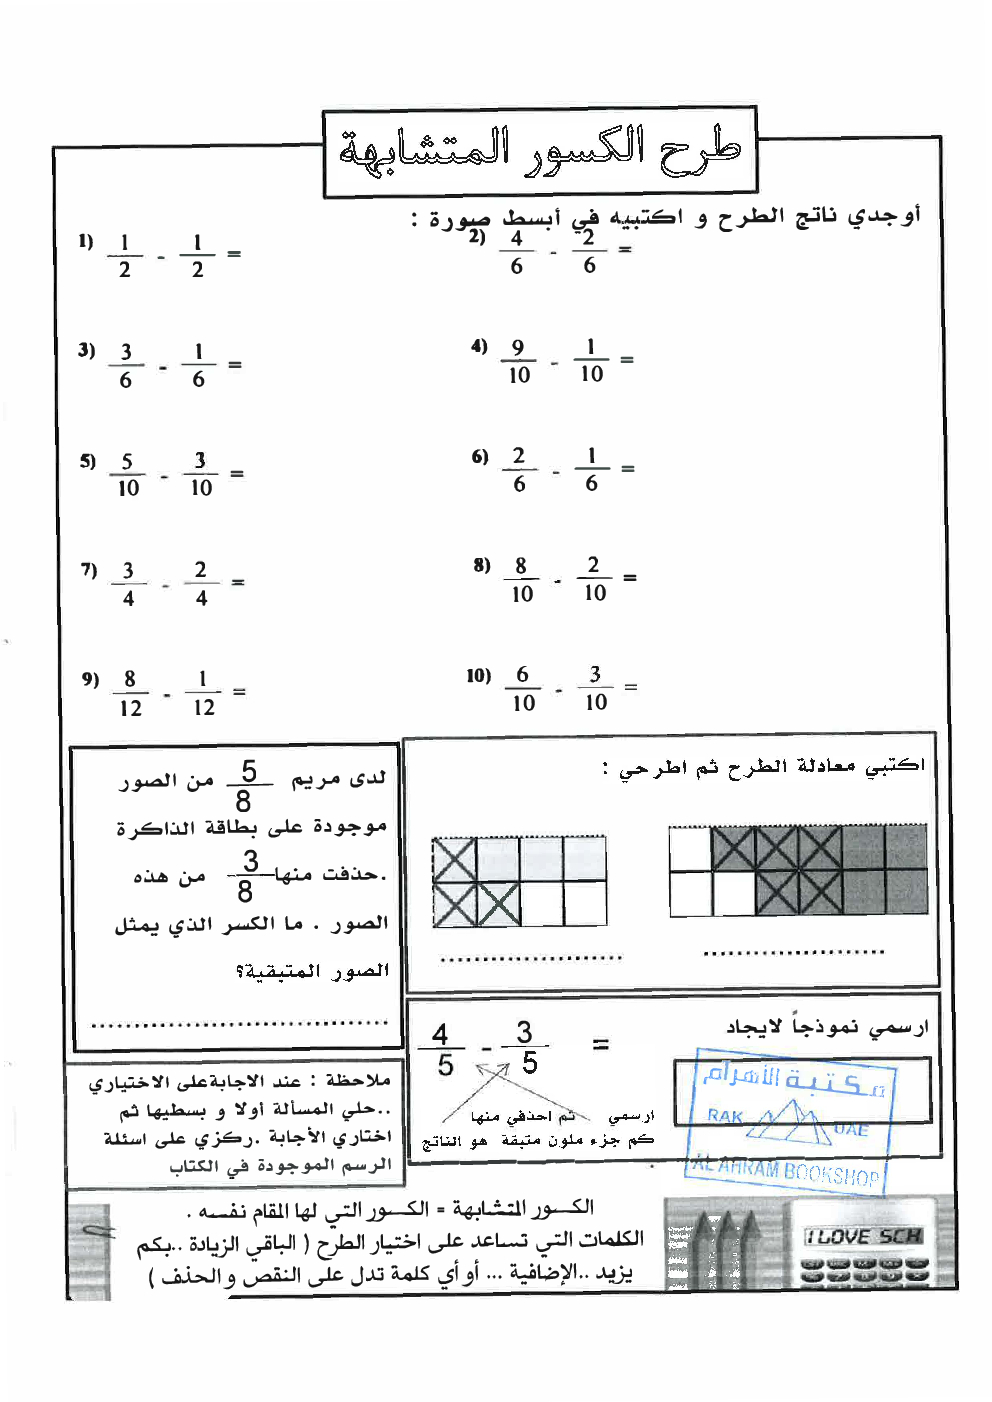 طرح الكسور المتشابهة
أوجدي ناتج الطرح و اكتبيه في أبسط صورة :
1) 1/2 - 1/2 =
2) 4/6 - 2/6 =
3) 3/6 - 1/6 =
4) 9/10 - 1/10 =
5) 5/10 - 3/10 =
6) 2/6 - 1/6 =
7) 3/4 - 2/4 =
8) 8/10 - 2/10 =
9) 8/12 - 1/12 =
10) 6/10 - 3/10 =
اكتبي معادلة الطرح ثم اطرحي :
..................... .....................
لدى مريم 5/8 من الصور
موجودة على بطاقة الذاكرة
.حذفت منها 3/8 من هذه
الصور . ما الكسر الذي يمثل
الصور المتبقية؟
.................................
ارسمي نموذجاً لايجاد
4/5 - 3/5 =
ارسمي ثم احذفي منها
كم جزء ملون متبقة هو الناتج
مكتبة الأهرام
RAK UAE
AL AHRAM BOOKSHOP
ملاحظة : عند الاجابةعلى الاختياري
..حلي المسألة أولا و بسطيها ثم
اختاري الأجابة .ركزي على اسئلة
الرسم الموجودة في الكتاب
الكسور المتشابهة = الكسور التي لها المقام نفسه .
الكلمات التي تساعد على اختيار الطرح ( الباقي الزيادة ..بكم
يزيد ..الإضافية ... أو أي كلمة تدل على النقص و الحذف )
I LOVE SCH